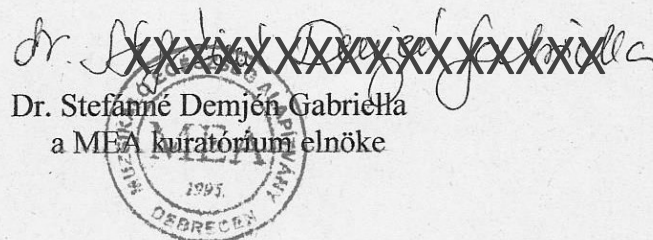 dr.
XXXXXXXXXXXXXXXXXX
Dr. Stefánné Demjén Gabriella
a MEA kuratórium elnöke
EGÉSZSÉG ALAPÍTVÁNY
MEA
1995.
DEBRECEN